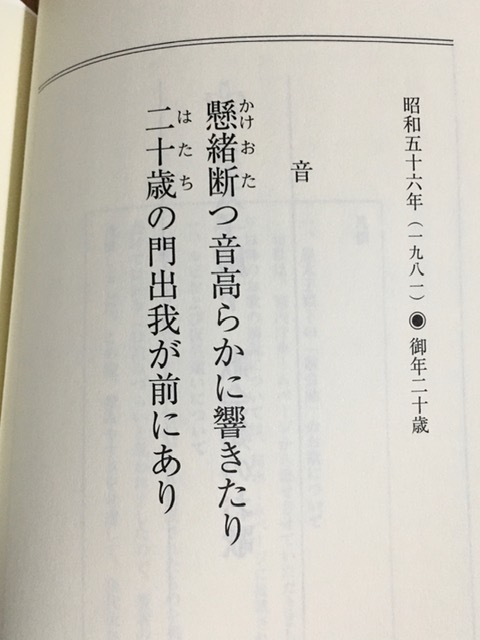 昭和五十六年（一九八一）◉御年二十歳
音
懸緒断つ音高らかに響きたり
かけおた
二十歳の門出我が前にあり
はたち